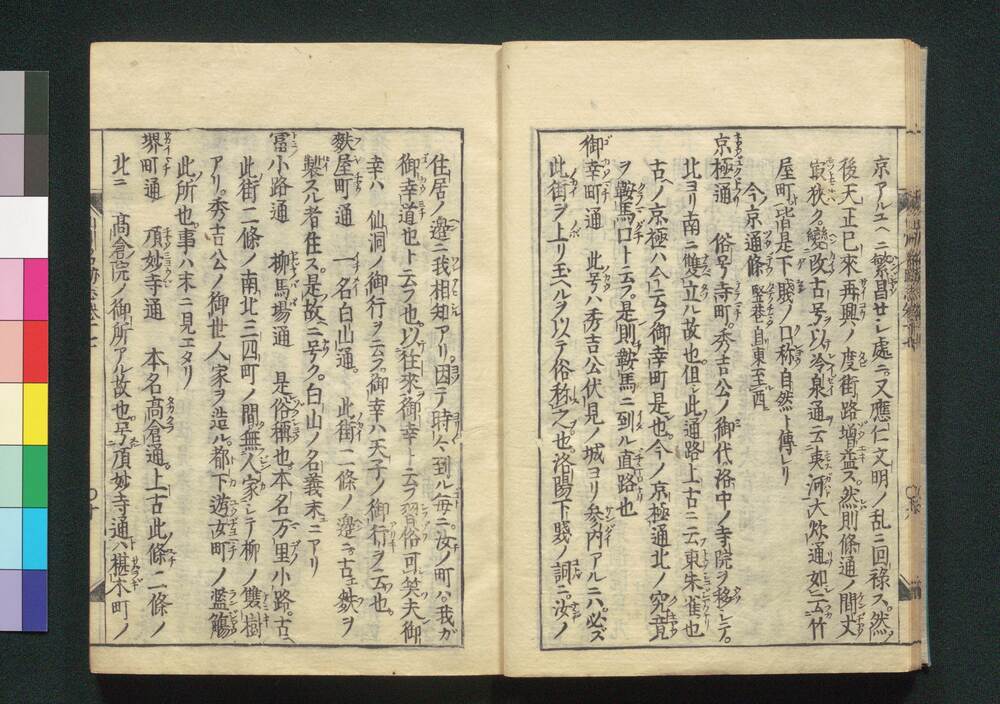 京アルユヘニ繁昌せシ處ニ又應仁文明ノ乱ニ回禄ス然ノ
後天正已來再興ノ度街路増益ス然則條通ノ間丈
最狭ク變改古号以冷泉通云夷河大炊通如云竹
屋町皆是下賤ノ口称自然ト傳レリ
今ノ京通條 竪巷自東至西
京極通 俗号寺町秀吉公ノ御代洛中ノ寺院ヲ移シテ
北ヨリ南ニ雙立ル故也但シ此通路上古ニ云東朱雀也
古ノ京極ハ今云ラ御幸町是也今ノ京極通北ノ究竟
ヲ鞍馬口ト云フ是則鞍馬ニ到ル直路也
御幸町通 此号ハ秀吉公伏見ノ城ヨリ参内アルニハ必ズ
此街ヲ上リ玉ヘルヲ以テ俗称之也洛陽下賤ノ詞ニ汝ノ
住居ノ邉ニ我相知アリ因テ時々到ル毎ニ汝ノ町ハ我ガ
御幸道也ト云フ也以往來御幸ト云フ習俗可笑夫御
幸ハ 仙洞ノ御行ヲ云フ御幸ハ天子ノ御行ヲ云也
麩屋町通 一名白山通 此街二條ノ邉ニ古ヘ麩ヲ
製スル者住ス是故ニ号ク白山ノ名義末ニアリ
冨小路通 柳馬場通 是俗稱也本名万里小路古ヘ
此街二條ノ南北三四町ノ間無人家シテ柳ノ雙樹
アリ秀吉公ノ御世人家ヲ造ル都下遊女町ノ濫觴
此所也事ハ末ニ見エタリ
堺町通 頂妙寺通 本名高倉通上古此條二條ノ
北ニ 髙倉院ノ御所アル故也号頂妙寺通ハ椹木町ノ